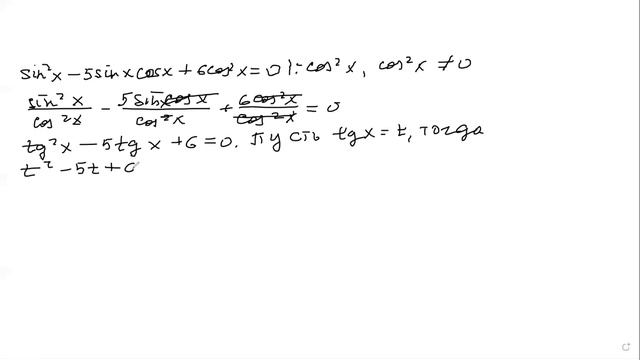 sin²x − 5sinxcosx + 6cos²x = 0 |: cos²x, cos²x ≠ 0
sin²x/cos²x − 5sinxcosx/cos²x + 6cos²x/cos²x = 0
tg²x − 5tgx + 6 = 0. Пусть tgx = t, тогда
t² − 5t + 6